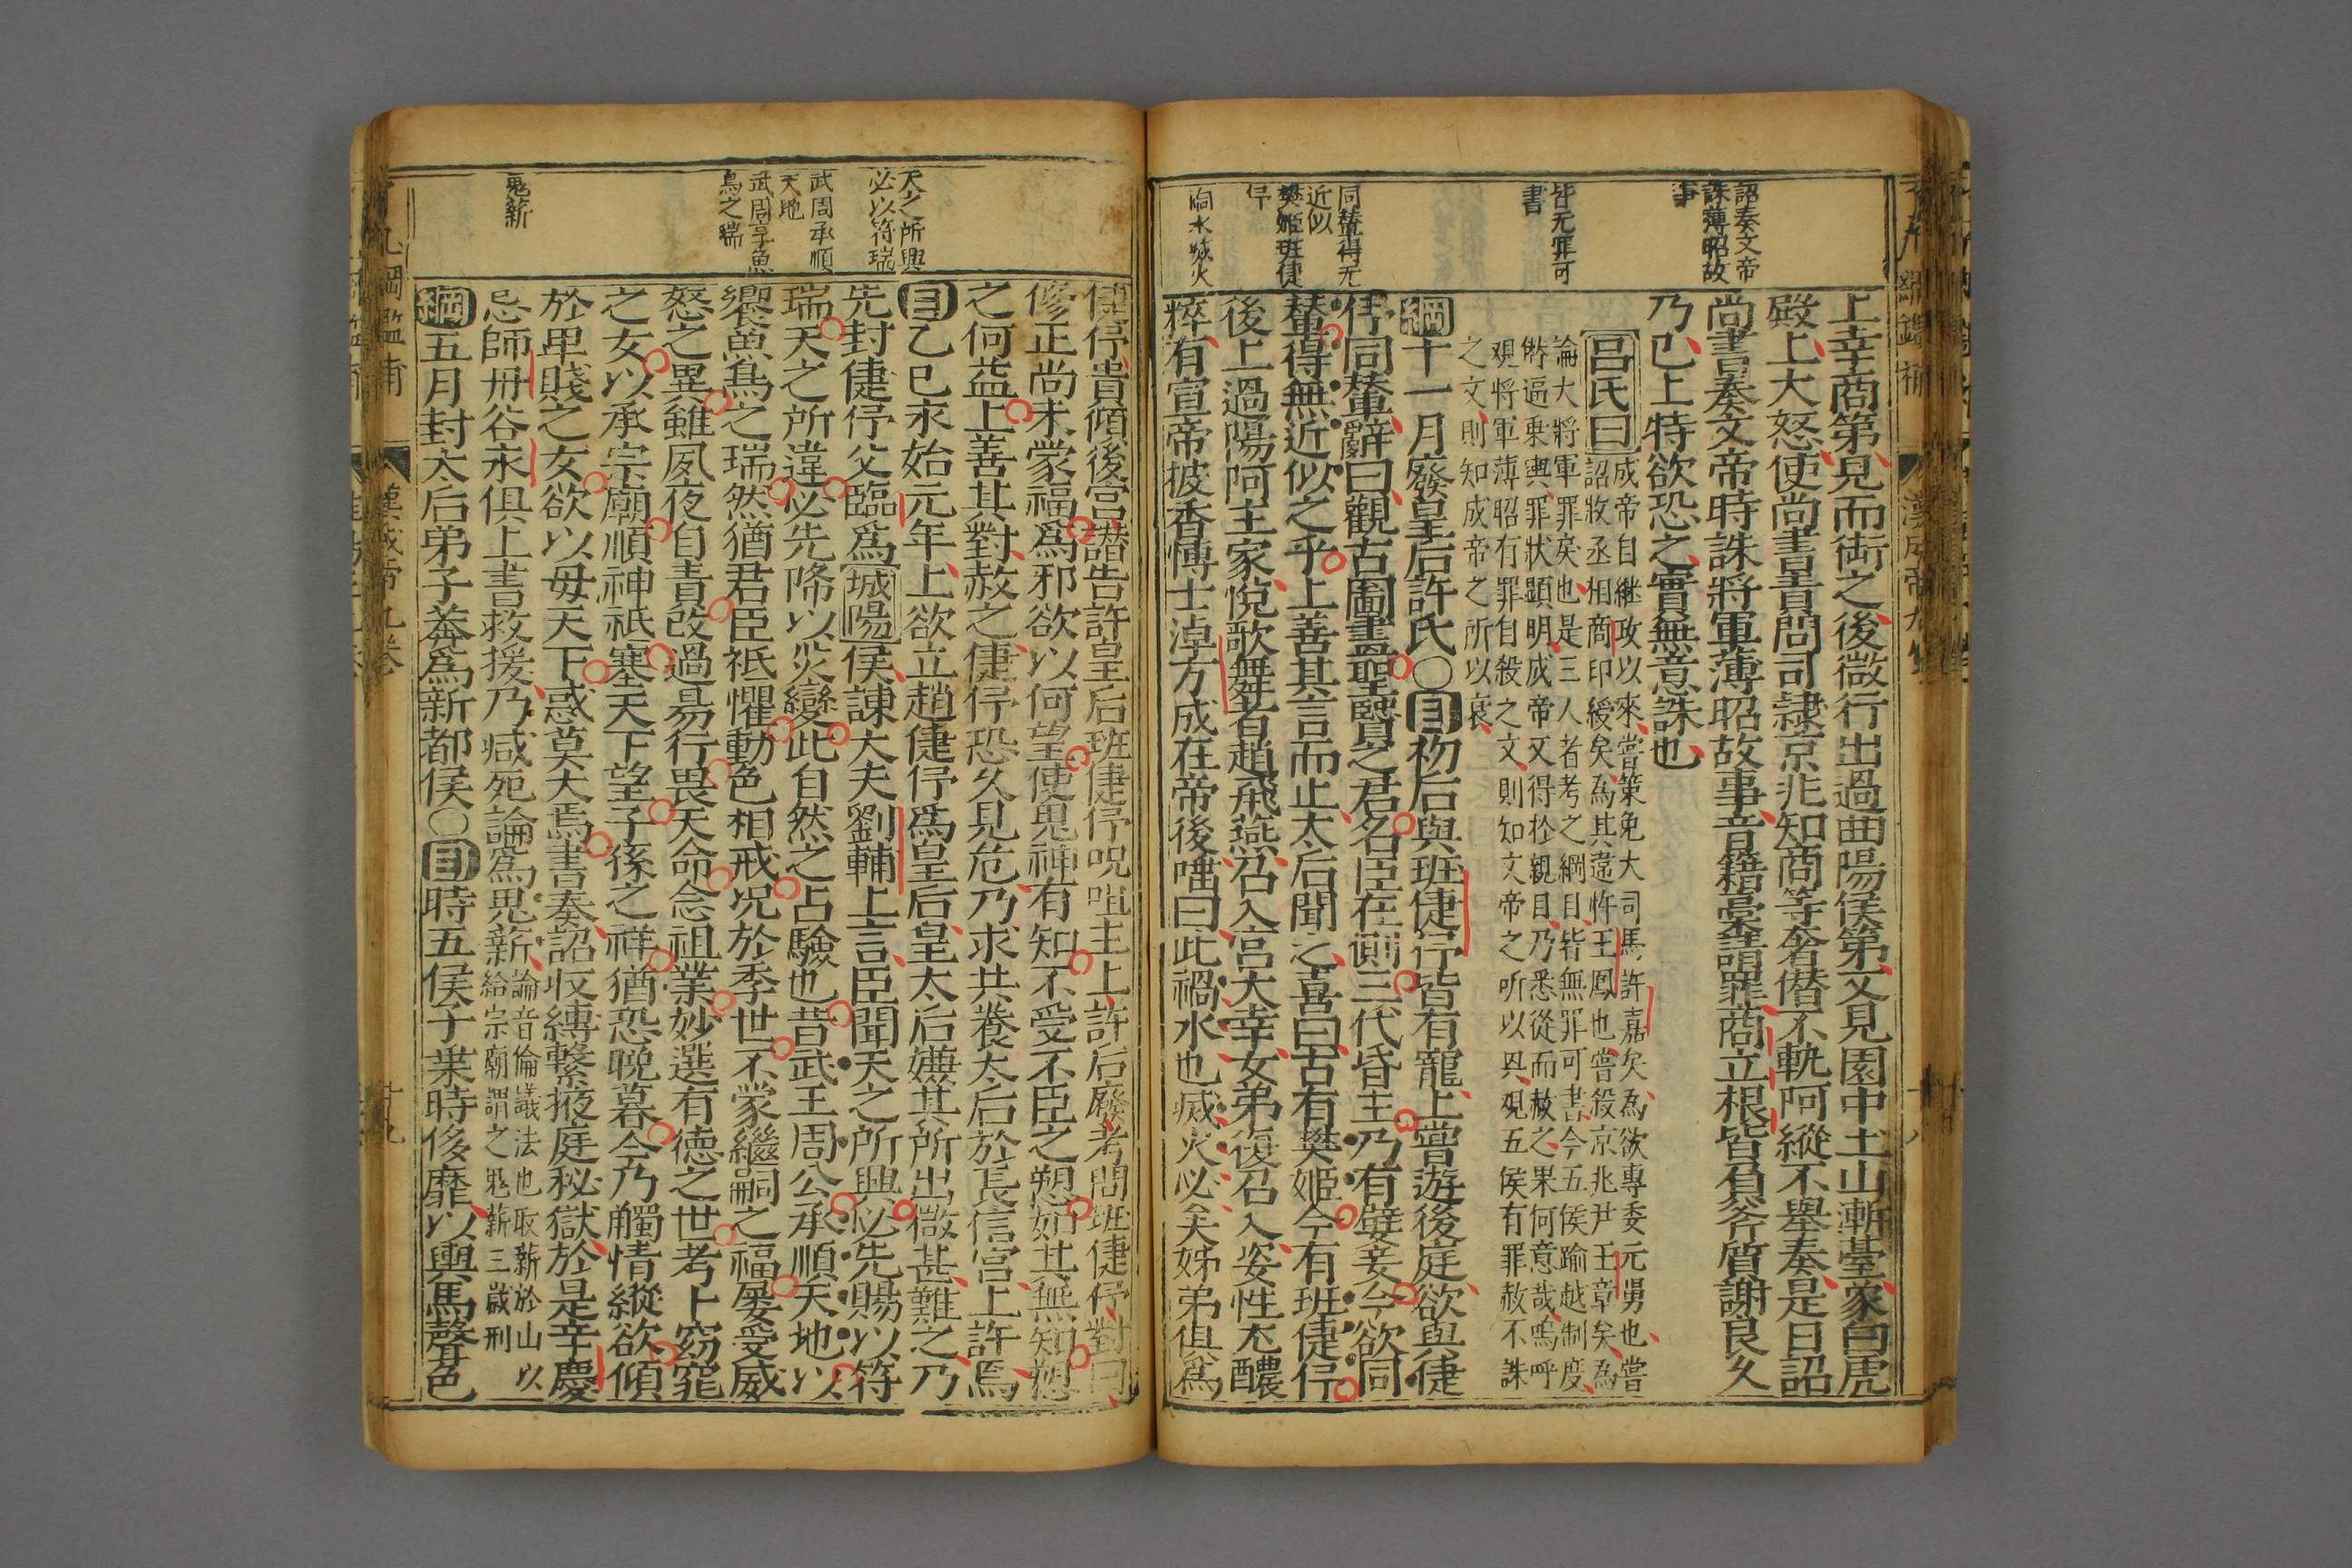 詔奏文帝
誅薄昭故
事
皆无罪可
書
同輦得无
近似
樊姬班倢
伃
禍水滅火
上幸商第見而銜之後微行出過曲陽侯第又見園中土山漸臺象白虎
殿上大怒使尚書責問司隷京兆知商等奢僭不軌阿縱不舉奏是日詔
尚書奏文帝時誅將軍薄昭故事音籍藁請罪商立根皆負斧質謝良久
乃已上特欲恐之實無意誅也
呂氏曰
成帝自継攻以來嘗策免大司馬許嘉矣為欲專委元舅也嘗
詔收丞相商印綬矣為其違忤王鳳也嘗殺京兆尹王章矣為
論大將軍罪戾也是三人者考之綱目皆無罪可書今五侯踰越制度
僭逼乗輿罪狀顯明成帝又得於親目乃悉從而赦之果何意哉嗚呼
覌將軍薄昭有罪自殺之文則知文帝之所以興覌五侯有罪赦不誅
之文則知成帝之所以衰
綱十一月廢皇后許氏○目初后與班倢伃皆有寵上嘗遊後庭欲與倢
伃同輦辭曰觀古圖畫聖賢之君名臣在側三代昏主乃有嬖妾今欲同
輦得無近似之乎上善其言而止太后聞之喜曰古有樊姬今有班倢伃
後上過陽阿主家悅歌舞者趙飛燕召入宮大幸女弟復召入姿性尤醲
粹有宣帝披香博士淖方成在帝後唾曰此禍水也滅火必矣姊弟俱為
天之所興
必以符瑞
武周承順
天地
武周享魚
鳥之瑞
鬼薪
倢伃貴傾後宮譖告許皇后班倢伃呪咀主上許后廢考問班倢伃對曰
修正尚未蒙福為邪欲以何望使鬼神有知不受不臣之愬如其無知愬
之何益上善其對赦之倢伃恐久見危乃求共養太后於長信宮上許焉
目乙巳永始元年上欲立趙倢伃為皇后皇太后嫌其所出微甚難之乃
先封倢伃父臨為城陽侯諫大夫劉輔上言臣聞天之所興必先賜以符
瑞天之所違必先降以災變此自然之占驗也昔武王周公承順天地以
饗魚鳥之瑞然猶君臣祇懼動色相戒況於季世不蒙繼嗣之福屢受威
怒之異雖夙夜自責改過昜行畏天命念祖業妙選有德之世考卜窈窕
之女以承宗廟順神祇塞天下望子孫之祥猶恐晚暮今乃觸情縱欲傾
於卑賤之女欲以母天下惑莫大焉書奏詔収縛繫掖庭秘獄於是辛慶
忌師丹谷永俱上書救援乃減死論為鬼薪
論音倫議法也取薪於山以
給宗廟謂之鬼薪三歲刑
綱五月封太后弟子莽為新都侯○目時五侯子乗時侈靡以輿馬聲色